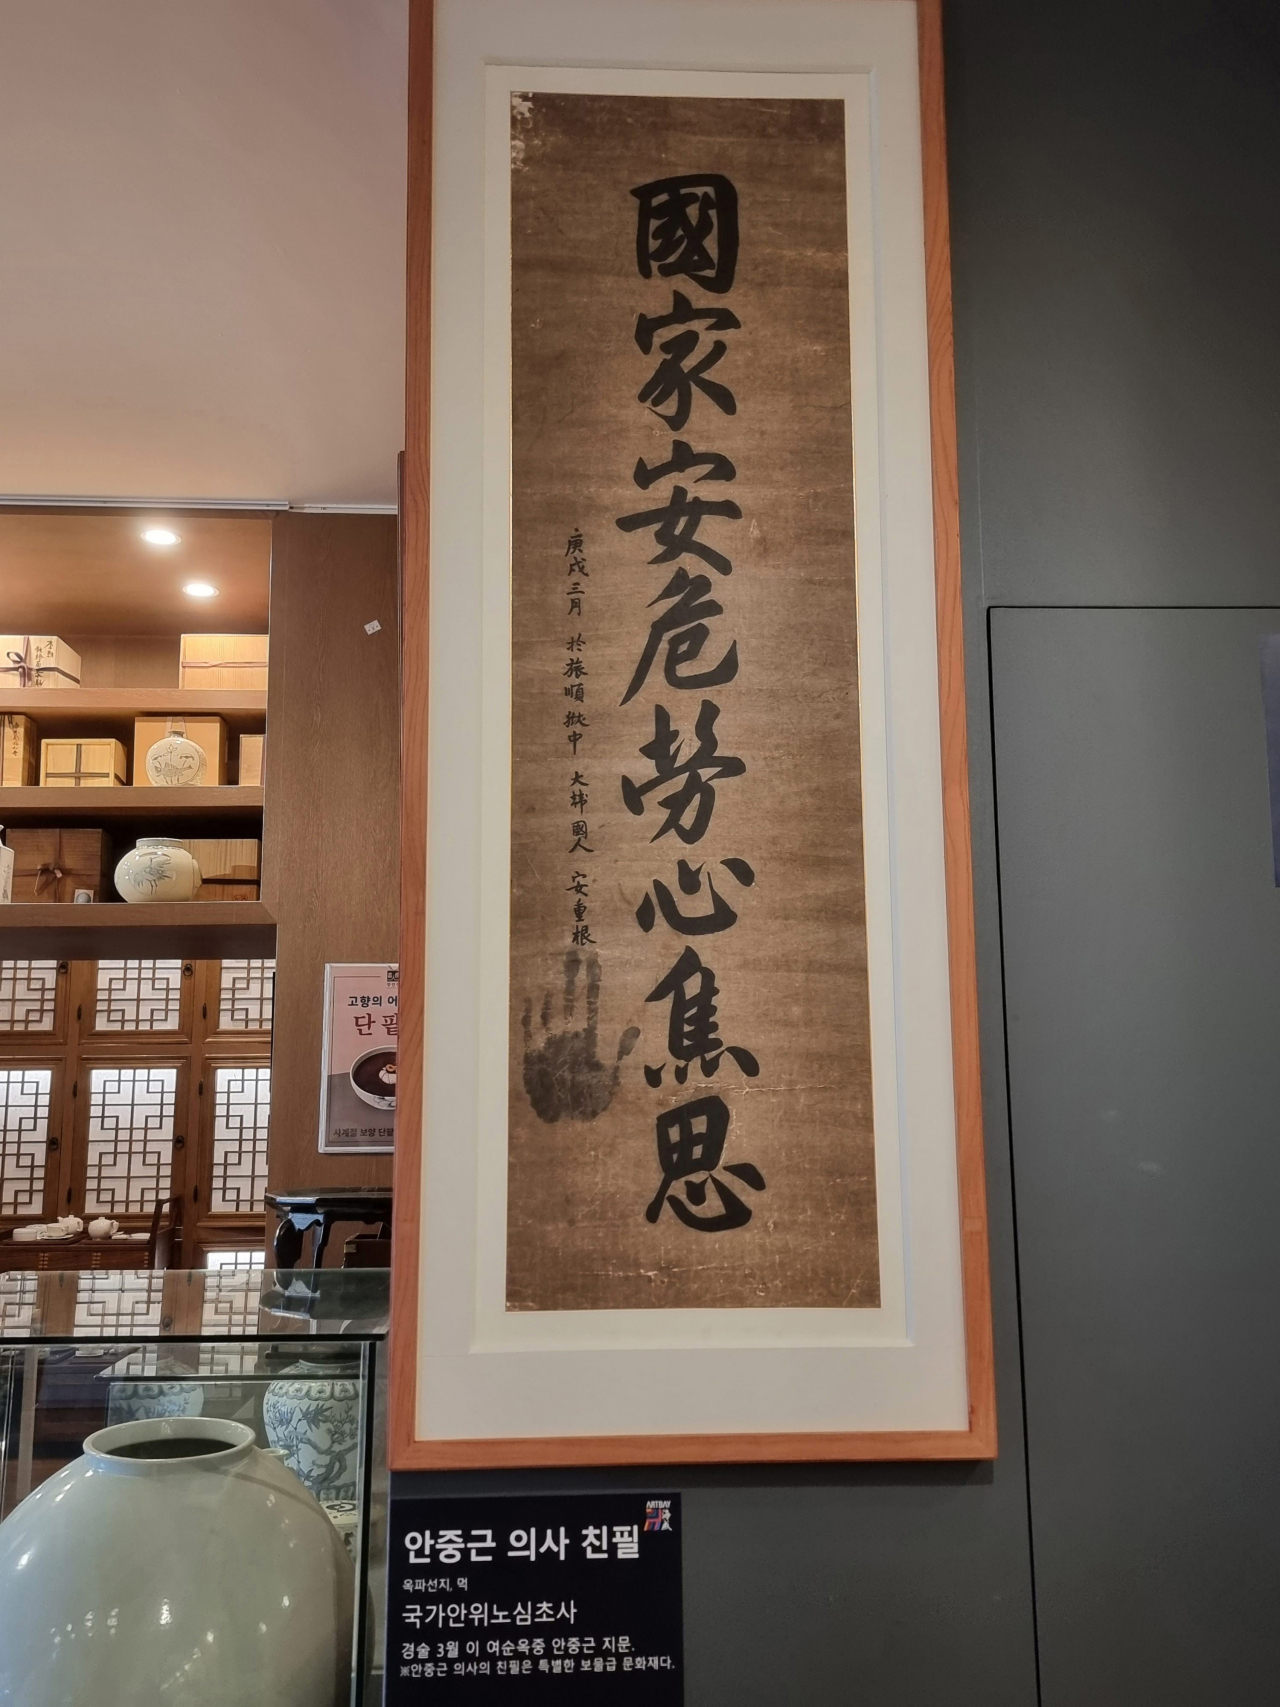 國家安危勞心焦思
庚戌三月 於旅順獄中 大韓國人 安重根
고향의
단팥
사계절 보양
ARTBAY
안중근 의사 친필
옥파선지, 먹
국가안위노심초사
경술 3월 이 여순옥중 안중근 지문.
※안중근 의사의 친필은 특별한 보물급 문화재다.